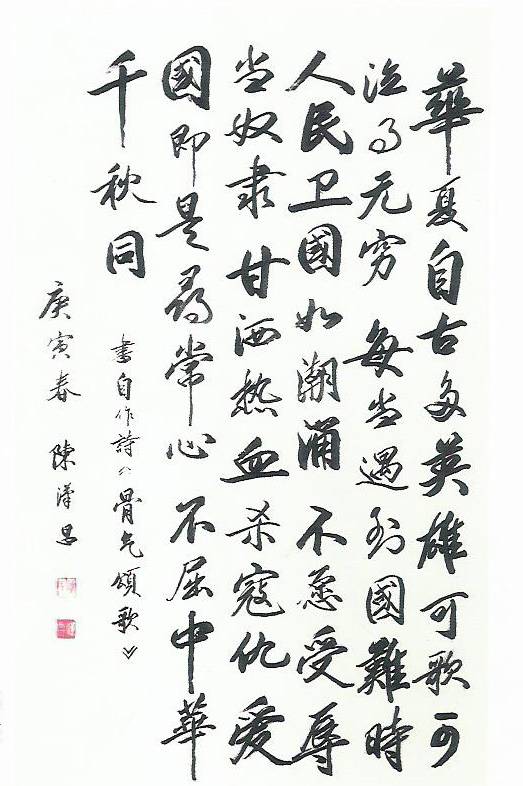 華夏自古多英雄可歌可
泣事无穷每当遇到國難時
人民卫國如潮涌不愿受辱
当奴隶甘洒热血杀寇仇爱
國即是尋常心不屈中華
千秋同
書自作詩《骨气頌歌》
庚寅春 陳漢